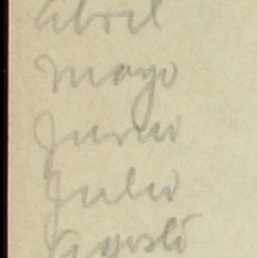 abril
Mayo
Junio
Julio
Agosto